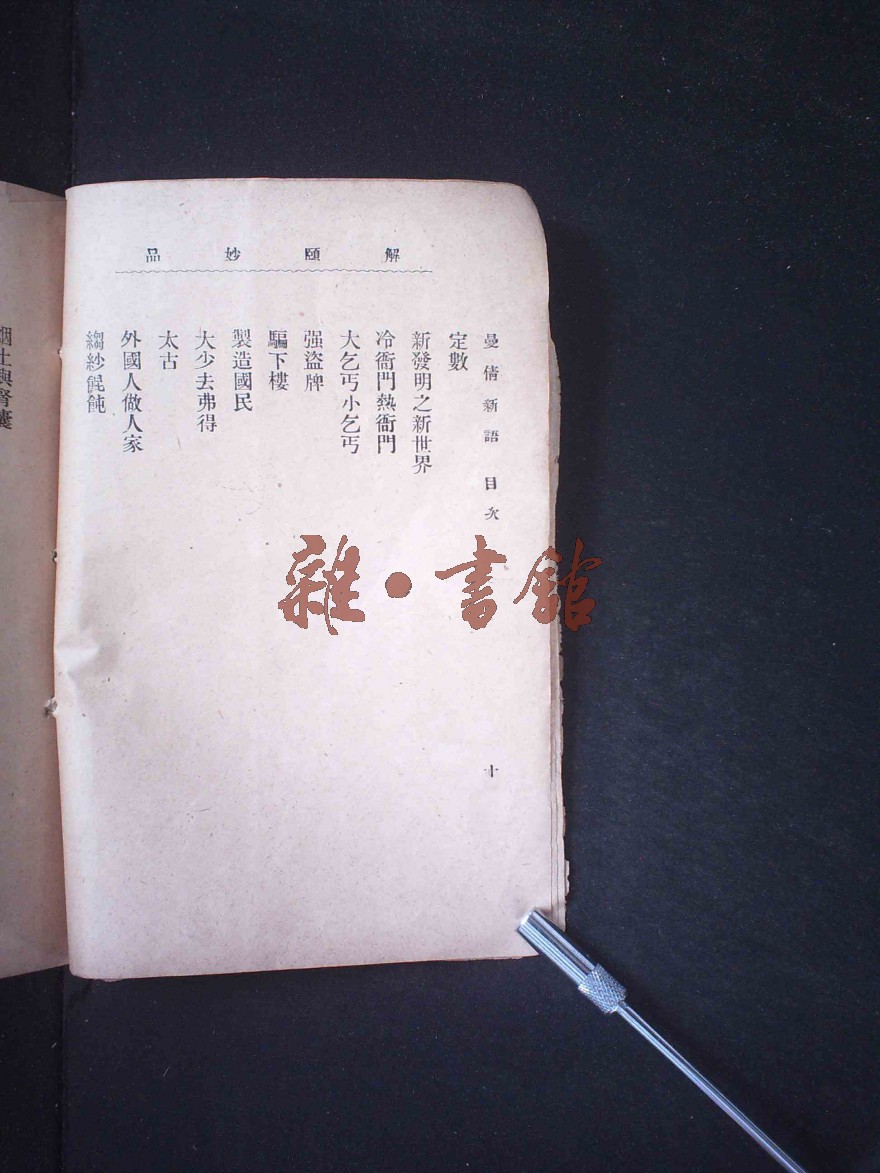 解頤妙品
曼倩新語 目次 十
定數
新發明之新世界
冷衙門熱衙門
大乞丐小乞丐
强盜牌
騙下樓
製造國民
大少去弗得
太古
外國人做人家
縐紗餛飩
土與
雜·書館